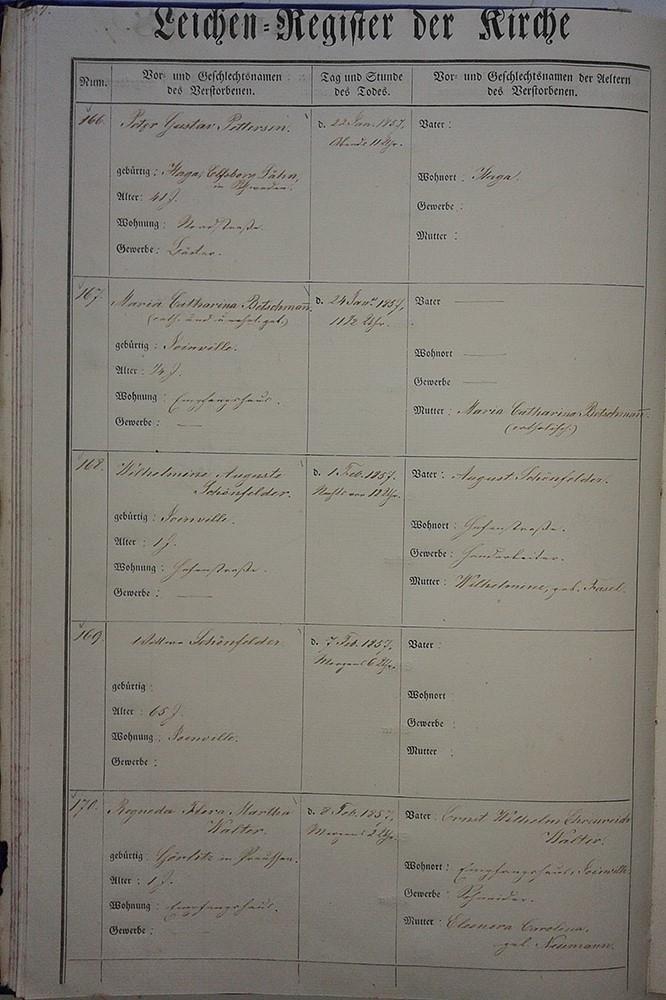 Leichen-Register der Kirche
Num.
Vor- und Geschlechtsnamen
des Verstorbenen.
Tag und Stunde
des Todes.
Vor- und Geschlechtsnamen der Aeltern
des Verstorbenen.
166.
Peter Gustav Pettersen.
gebürtig: Haga, Elfsborg Lähn,
in Schweden.
Alter: 41 J.
Wohnung: Nordstraße.
Gewerbe:
d. 22 Jan. 1857,
Abends 11 Uhr.
Vater:
Wohnort: Haga.
Gewerbe:
Mutter:
167.
Maria Catharina Betschmañ.
(cath. und unehel. geb.)
gebürtig: Joinville.
Alter: 1/4 J.
Wohnung: Empfangshaus.
Gewerbe: —
d. 24 Jan. 1857,
Uhr.
Vater —
Wohnort —
Gewerbe —
Mutter: Maria Catharina Betschmañ.
(catholisch.)
168.
Wilhelmine Auguste
Schönfelder.
gebürtig: Joinville.
Alter: 1 J.
Wohnung: Hafenstraße.
Gewerbe: —
d. 1 Feb. 1857.
Nachts um 12 Uhr.
Vater: August Schönfelder.
Wohnort: Hafenstraße.
Gewerbe: Handarbeiter.
Mutter: Wilhelmine, geb.
169.
Wittwe Schönfelder
gebürtig:
Alter: 65 J.
Wohnung: Joinville.
Gewerbe:
d. 7 Feb. 1857,
Morgens 6 Uhr.
Vater:
Wohnort
Gewerbe:
Mutter:
170.
Flora Martha
Walter.
gebürtig: Görlitz in Preußen.
Alter: 1 J.
Wohnung: Empfangshaus.
Gewerbe:
d. 8 Feb. 1857,
Morgens 2 Uhr.
Vater: Ernst Wilhelm Ehrenreich
Walter.
Wohnort: Empfangshaus, Joinville
Gewerbe: Schneider.
Mutter: Eleonora Carolina,
geb. Neumann.